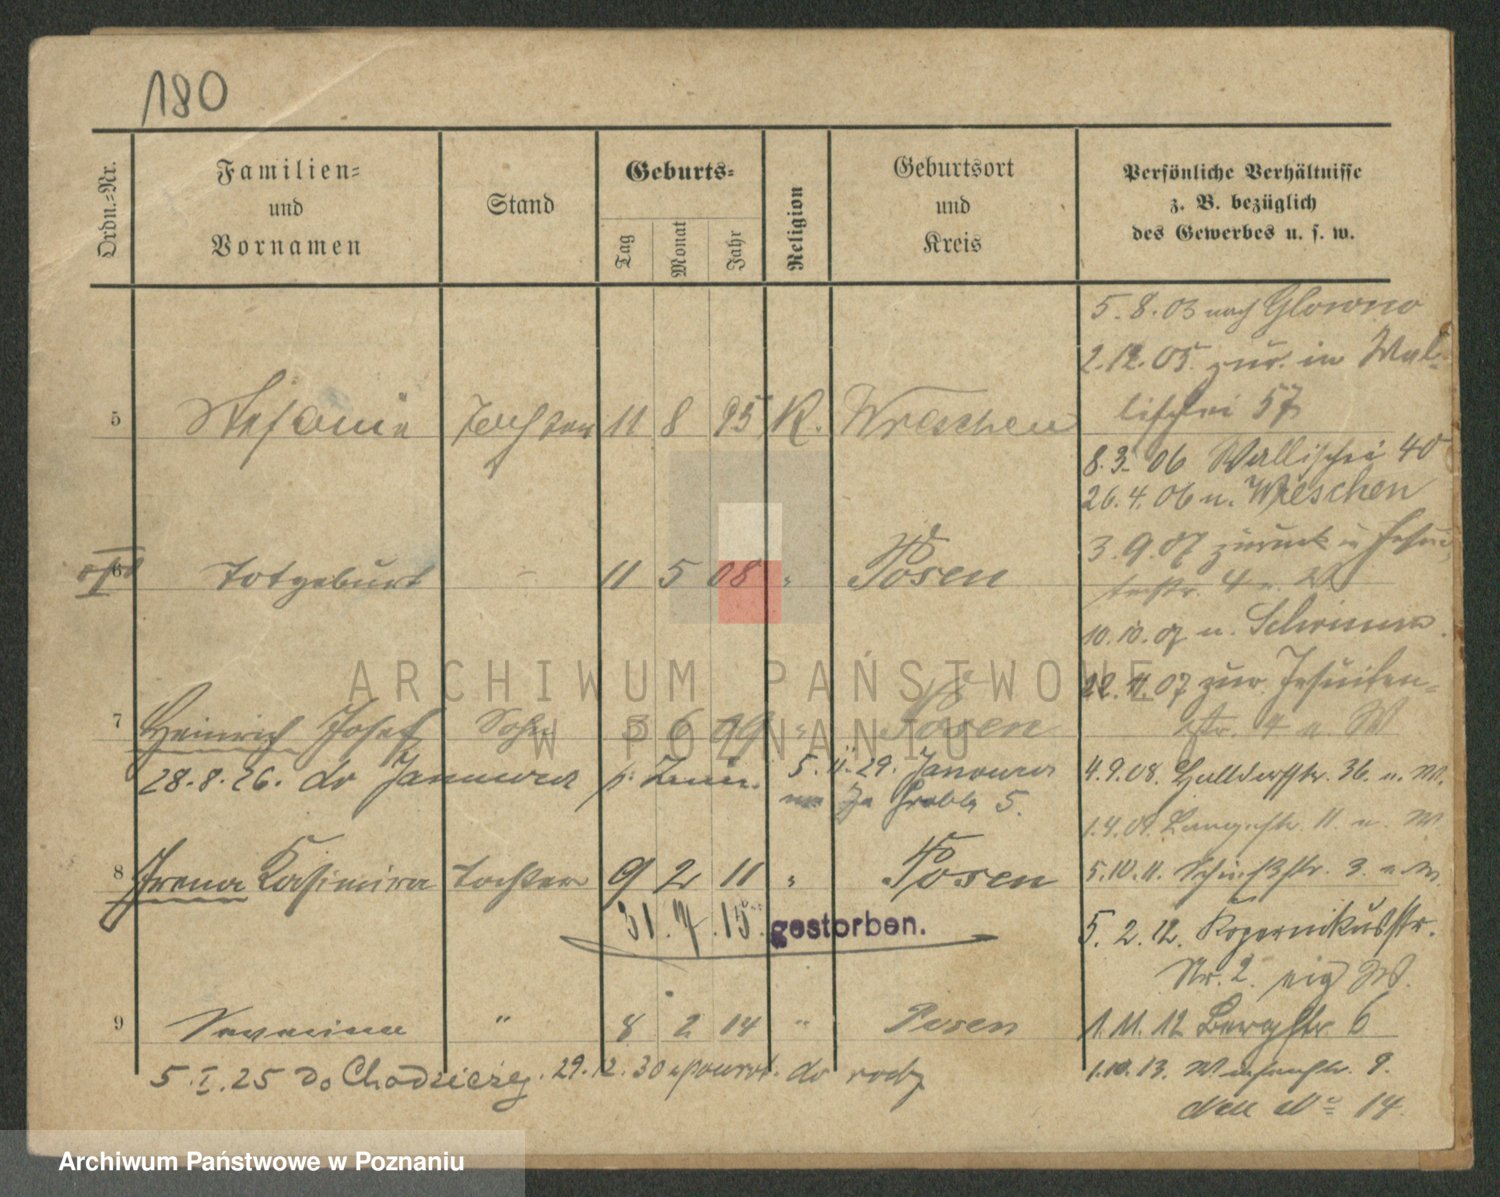 180
Ordn.-Nr.
Familien-
und
Vornamen
Stand
Geburts-
Tag
Monat
Jahr
Religion
Geburtsort
und
Kreis
Persönliche Verhältnisse
z. B. bezüglich
des Gewerbes u. s. w.
5 Stefanie Tochter 11 8 95 K. Wreschen
6 Totgeburt - 11 5 08 " Posen
7 Heinrich Josef Sohn 3 6 09 " Posen
28.8.26. do Janowca p. Żnin. 5.11.29. Janowca
Grobla 5.
8 Irena Kasimira Tochter 9 2 11 " Posen
31.7.15. gestorben.
9 " 8 2 14 " Posen
5.I.25 do Chodzieży. 29.12.30 z powrot. do
5.8.03 nach Glowno
2.12.05 zur. in Wal-
lischei 57
8.3.06 Wallischei 40
26.4.06 n. Wreschen
3.9.07 zurück Jesui-
tenstr. 4 n. W
10.10.07 n. Schrimm.
22.11.07 zur Jesuiten-
str. 4 n. W
4.9.08. Halldorfstr. 36. n. W.
1.4.09. Langestr. 11. n. W
5.10.11. Schießstr. 3. n. W.
5.2.12. Kopernikusstr.
Nr. 2. eig W.
1.11.12 Bergstr. 6
1.10.13. 9.
14.
ARCHIWUM PAŃSTWOWE
W POZNANIU
Archiwum Państwowe w Poznaniu